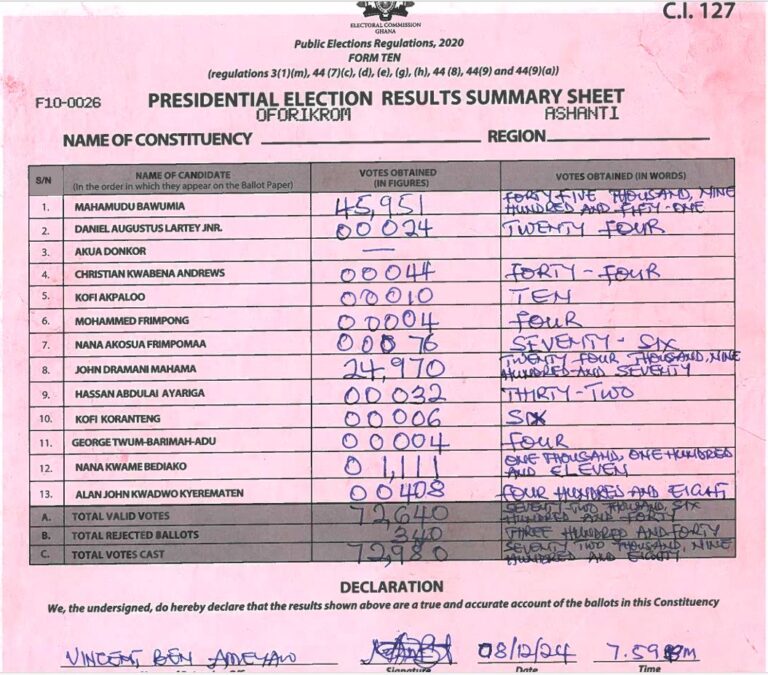 C.I. 127
ELECTORAL COMMISSION
GHANA
Public Elections Regulations, 2020
FORM TEN
(regulations 3(1)(m), 44 (7)(c), (d), (e), (g), (h), 44 (8), 44(9) and 44(9)(a))
F10-0026 PRESIDENTIAL ELECTION RESULTS SUMMARY SHEET
OFORIKROM ASHANTI
NAME OF CONSTITUENCY REGION
S/N NAME OF CANDIDATE (In the order in which they appear on the Ballot Paper) VOTES OBTAINED (IN FIGURES) VOTES OBTAINED (IN WORDS)
1. MAHAMUDU BAWUMIA 45,951 FORTY-FIVE THOUSAND, NINE HUNDRED AND FIFTY-ONE
2. DANIEL AUGUSTUS LARTEY JNR. 00024 TWENTY FOUR
3. AKUA DONKOR —
4. CHRISTIAN KWABENA ANDREWS 00044 FORTY-FOUR
5. KOFI AKPALOO 00010 TEN
6. MOHAMMED FRIMPONG 00004 FOUR
7. NANA AKOSUA FRIMPOMAA 00076 SEVENTY-SIX
8. JOHN DRAMANI MAHAMA 24,970 TWENTY FOUR THOUSAND, NINE HUNDRED AND SEVENTY
9. HASSAN ABDULAI AYARIGA 00032 THIRTY-TWO
10. KOFI KORANTENG 00006 SIX
11. GEORGE TWUM-BARIMAH-ADU 00004 FOUR
12. NANA KWAME BEDIAKO 01,111 ONE THOUSAND, ONE HUNDRED AND ELEVEN
13. ALAN JOHN KWADWO KYEREMATEN 00408 FOUR HUNDRED AND EIGHT
A. TOTAL VALID VOTES 72,640 SEVENTY TWO THOUSAND, SIX HUNDRED AND FORTY
B. TOTAL REJECTED BALLOTS 340 THREE HUNDRED AND FORTY
C. TOTAL VOTES CAST 72,980 SEVENTY TWO THOUSAND, NINE HUNDRED AND EIGHTY
DECLARATION
We, the undersigned, do hereby declare that the results shown above are a true and accurate account of the ballots in this Constituency
VINCENT BEN AMEYAW 08/12/24 7.59 PM
Signature Date Time